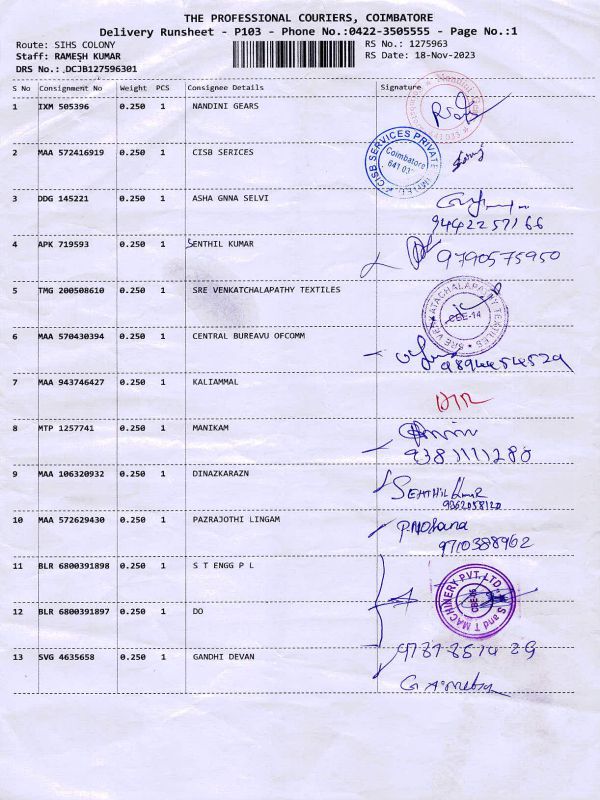 THE PROFESSIONAL COURIERS, COIMBATORE
Delivery Runsheet - P103 - Phone No.:0422-3505555 - Page No.:1
Route: SIHS COLONY RS No.: 1275963
Staff: RAMESH KUMAR RS Date: 18-Nov-2023
DRS No.: DCJB127596301
S No Consignment No Weight PCS Consignee Details Signature
1 IXM 505396 0.250 1 NANDINI GEARS
641 035
2 MAA 572416919 0.250 1 CISB SERICES
CISB SERVICES PRIVATE LIMITED Coimbatore
3 DDG 145221 0.250 1 ASHA GNNA SELVI
9442257166
4 APK 719593 0.250 1 SENTHIL KUMAR
9790575950
5 TMG 200508610 0.250 1 SRE VENKATCHALAPATHY TEXTILES
SRE VENKATACHALAPATHY TEXTILES CBE-14
6 MAA 570430394 0.250 1 CENTRAL BUREAVU OFCOMM
9894454529
7 MAA 943746427 0.250 1 KALIAMMAL
8 MTP 1257741 0.250 1 MANIKAM
9381111280
9 MAA 106320932 0.250 1 DINAZKARAZN
SENTHIL KUMAR
9362058120
10 MAA 572629430 0.250 1 PAZRAJOTHI LINGAM
P. Mohana
9710388962
11 BLR 6800391898 0.250 1 S T ENGG P L
S and T MACHINERY PVT. LTD.
12 BLR 6800391897 0.250 1 DO
13 SVG 4635658 0.250 1 GANDHI DEVAN